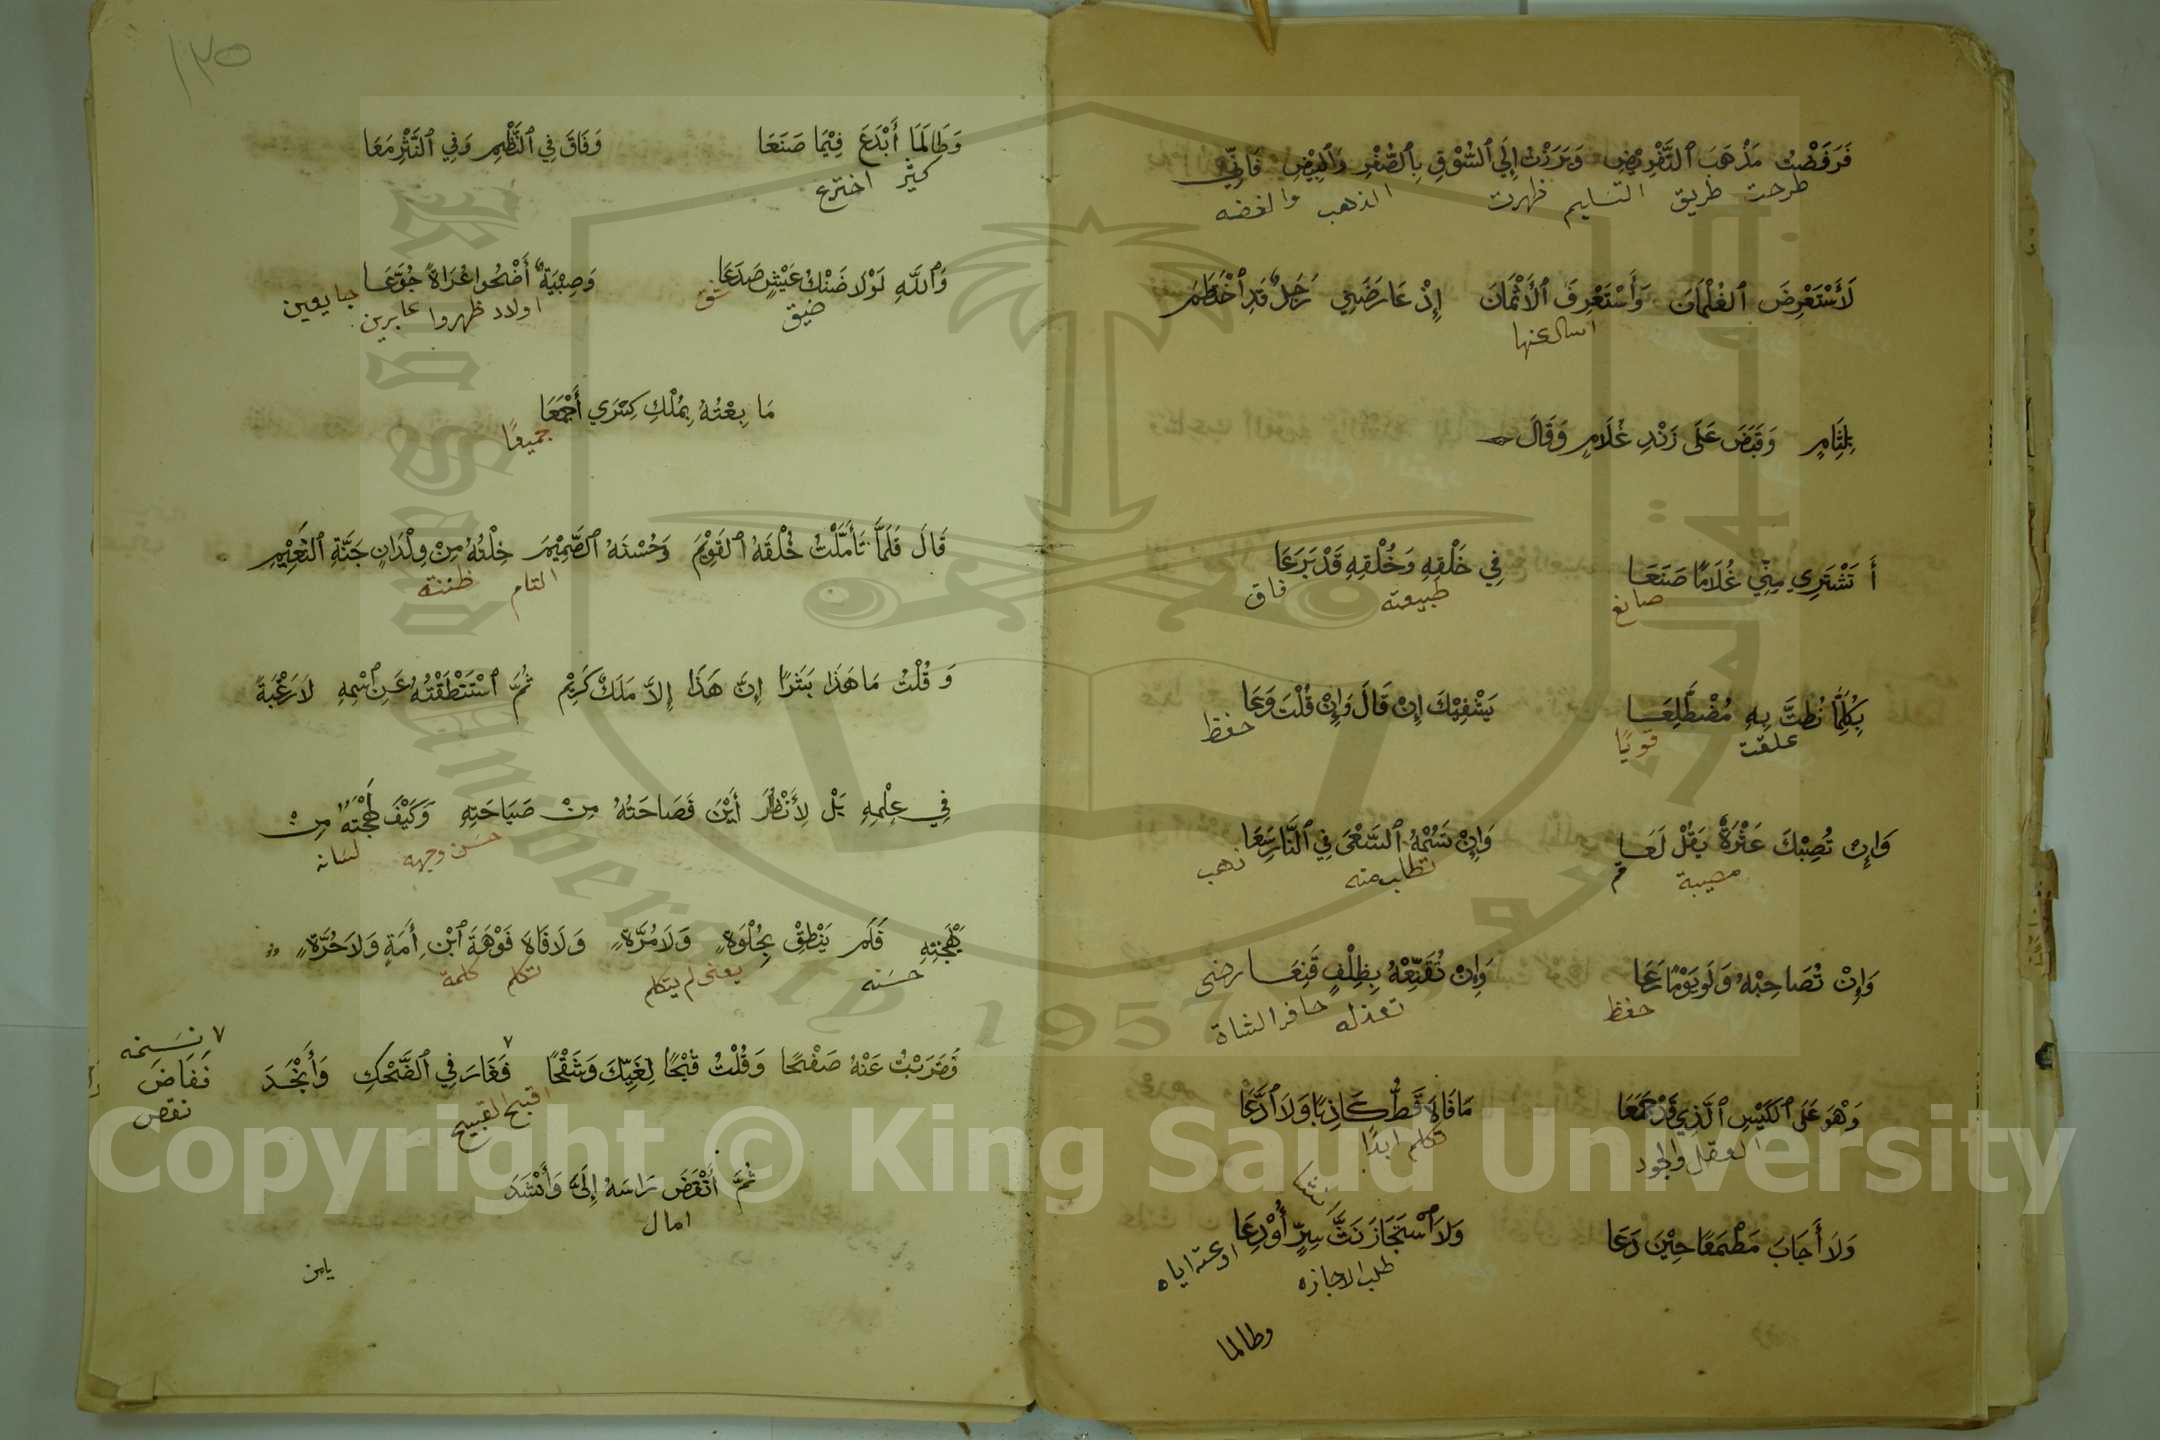 فَرَفَضْتُ مَذْهَبَ ٱلتَّفْرِيْضِ وَبَرَزْتُ إِلَي ٱلسُّوْقِ بِٱلصُّفْرِ وَٱلْبِيْضِ فَإِنِّي
طرحت طريق التسليم ظهرت الذهب والفضه
لَأَسْتَعْرِضُ ٱلْغُلْمَانَ وَأَسْتَعْرِفُ ٱلْأَثْمَانَ إِذْ عَارَضَنِي رَجُلٌ قَدِ ٱخْتَطَمَ
اسال عنها
بِلِثَامٍ وَقَبَضَ عَلَى زَنْدِ غُلَامٍ وَقَالَ
أَ تَشْتَرِي مِنِّي غُلَامًا صَنَعَا فِي خَلْقِهِ وَخُلْقِهِ قَدْ بَرَعَا
صانع طبيعته فاق
بِكُلِّمَا نُطْتَّ بِهِ مُضْطَلِعَا يَشْفِيْكَ إِنْ قَالَ وَإِنْ قُلْتَ وَعَا
علقت قويًا حفظ
وَإِنْ تُصِبْكَ عَثْرَةٌ يَقُلْ لَعَا وَإِنْ تَسُمْهُ ٱلسَّعْيَ فِي ٱلنَّارِ سَعَا
مصيبة قم تطلب منه ذهب
وَإِنْ تُصَاحِبْهُ وَلَو يَوْمًا رَعَا وَإِنْ تُقَنِّعْهُ بِظِلْفٍ قَنِعَا رضى
حفظ تعذله حافر الشاة
وَهْوَ عَلَى ٱلْكَيْسِ ٱلَّذِي قَدْ جَمَعَا مَا فَاهَ قَطُّ كَاذِبًا وَلَا ٱدَّعَا
العقل والجود تكلم ابدًا
وَلَا أَجَابَ مَطْمَعًا حِيْنَ دَعَا وَلَا ٱسْتَجَازَ نَثَّ سِرٍّ أُوْدِعَا
طلب الاجازه نشر اودعته اياه
وطالما
١٣٥
وَطَالَمَا أَبْدَعَ فِيْمَا صَنَعَا وَفَاقَ فِي ٱلنَّظْمِ وَفِي ٱلنَّثْرِ مَعَا
كثير اخترع
وَٱللَّهِ لَوْلَا ضَنْكُ عَيْشٍ صَدَعَا وَصِبْيَةٌ أَضْحُوا عُرَاةً جُوَّعَا
ضيق شق اولاد ظهروا عابرين جايعين
مَا بِعْتُهُ بِمُلْكِ كِسْرَي أَجْمَعَا
جميعًا
قَالَ فَلَمَّا تَأَمَّلْتُ خُلْقَهُ ٱلْقَوِيْمَ وَحُسْنَهُ ٱلصَّمِيْمَ خِلْتُهُ مِنْ وِلْدَانِ جَنَّةِ ٱلنَّعِيْمِ
التام ظننته
وَقُلْتُ مَا هَذَا بَشَرًا إِنْ هَذَا إِلَّا مَلَكٌ كَرِيْمٌ ثُمَّ ٱسْتَنْطَقْتُهُ عَنِ ٱسْمِهِ لَا رَغْبَةً
فِي عِلْمِهِ بَلْ لِأَنْظُرَ أَيْنَ فَصَاحَتُهُ مِنْ صَبَاحَتِهِ وَكَيْفَ لَهْجَتُهُ مِنْ
حسن وجهه لسانه
بَهْجَتِهِ فَلَمْ يَنْطِقْ بِحُلْوَةٍ وَلَا مُرَّةٍ وَلَا فَاهَ فَوْهَةَ ٱبْنِ أَمَةٍ وَلَا حُرَّةٍ
حسنه يعني لم يتكلم تكلم كلمة
فَضَرَبْتُ عَنْهُ صَفْحًا وَقُلْتُ قُبْحًا لِعَيِّكَ وَشَقْحًا فَغَارَ فِي ٱلضَّحْكِ وَأَنْجَدَ
٧ نسخه فَفَاضَ نقص
اقبح القبيح
ثُمَّ أَنْغَضَ رَاسَهُ إِلَيَّ وَأَنْشَدَ
امال
يامن
Copyright © King Saud University
King Saud University
1957